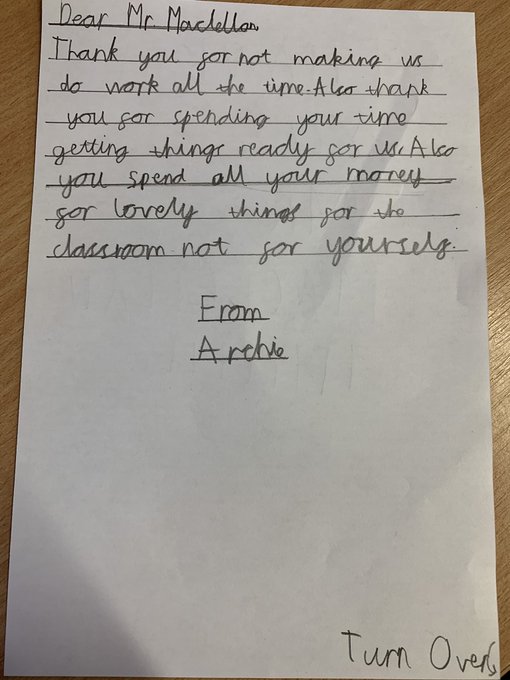 Dear Mr Maclellan
Thank you for not making us
do work all the time. Also thank
you for spending your time
getting things ready for us. Also
you spend all your money
for lovely things for the
classroom not for yourself.
From
Archie
Turn Over